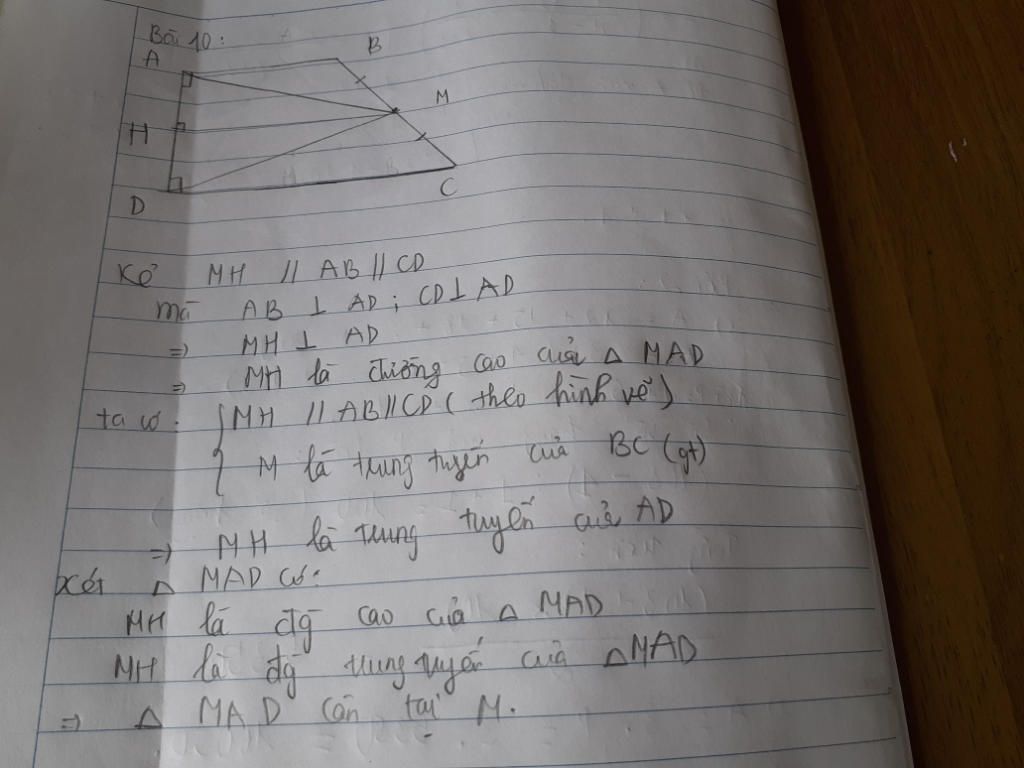 Bài 10:
A
B
M
H
D
C
Kẻ MH // AB // CD
mà AB ⊥ AD ; CD ⊥ AD
=> MH ⊥ AD
=> MH là đường cao của Δ MAD
ta có : { MH // AB // CD ( theo hình vẽ )
M là trung tuyến của BC (gt)
=> MH là trung tuyến của AD
Xét Δ MAD có:
MH là đg cao của Δ MAD
MH là đg trung tuyến của Δ MAD
=> Δ MAD cân tại M.